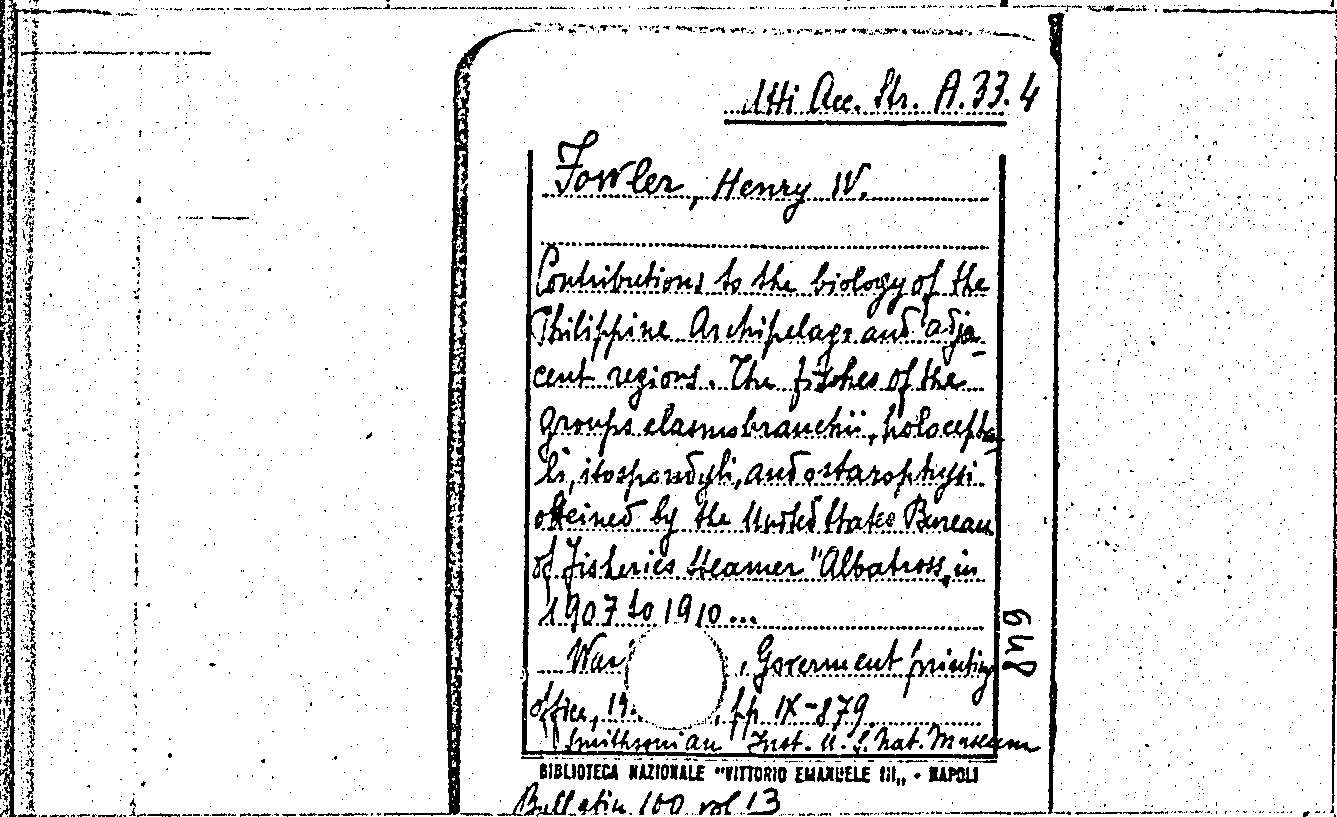 Atti Acc. Str. A.33.4
Fowler, Henry W.
Contributions to the biology of the
Philippine Archipelago and adja-
cent regions. The fishes of the
groups elasmobranchii, holocepha-
li, isospondyli, and ostarophysi
obteined by the United States Bureau
of Fisheries Steamer "Albatross„ in
1907 to 1910...
Was , Goverment printing
office, 19. , pp. IX-879.
Smithsonian Inst. U.S. Nat. Museum
BIBLIOTECA NAZIONALE "VITTORIO EMANUELE III„ - NAPOLI
Bulletin 100 vol 13